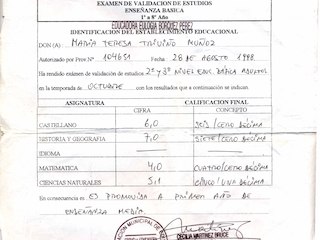 EXAMEN DE VALIDACION DE ESTUDIOS
ENSEÑANZA BASICA
1º a 8º Año
EDUCADORA EULOGIA BORQUEZ PEREZ
IDENTIFICACION DEL ESTABLECIMIENTO EDUCACIONAL
DON (A) MARIA TERESA TRIVIÑO MUÑOZ
Autorizado por Prov Nº 104651 Fecha 26 DE AGOSTO 1998
Ha rendido exámen de validación de estudios 2º y 3º NIVEL EDUC. BASICA ADULTOS
en la temporada de OCTUBRE con los resultados que a continuación se indican.
ASIGNATURA CALIFICACION FINAL
CIFRA CONCEPTO
CASTELLANO 6,0 SEIS/CERO DECIMA
HISTORIA Y GEOGRAFIA 7,0 SIETE/CERO DECIMA
IDIOMA
MATEMATICA 4,0 CUATRO/CERO DECIMA
CIENCIAS NATURALES 5,1 CINCO/UNA DECIMA
En consecuencia ES PROMOVIDA A PRIMER AÑO DE
ENSEÑANZA MEDIA
CECILIA MARTINEZ BRUCE